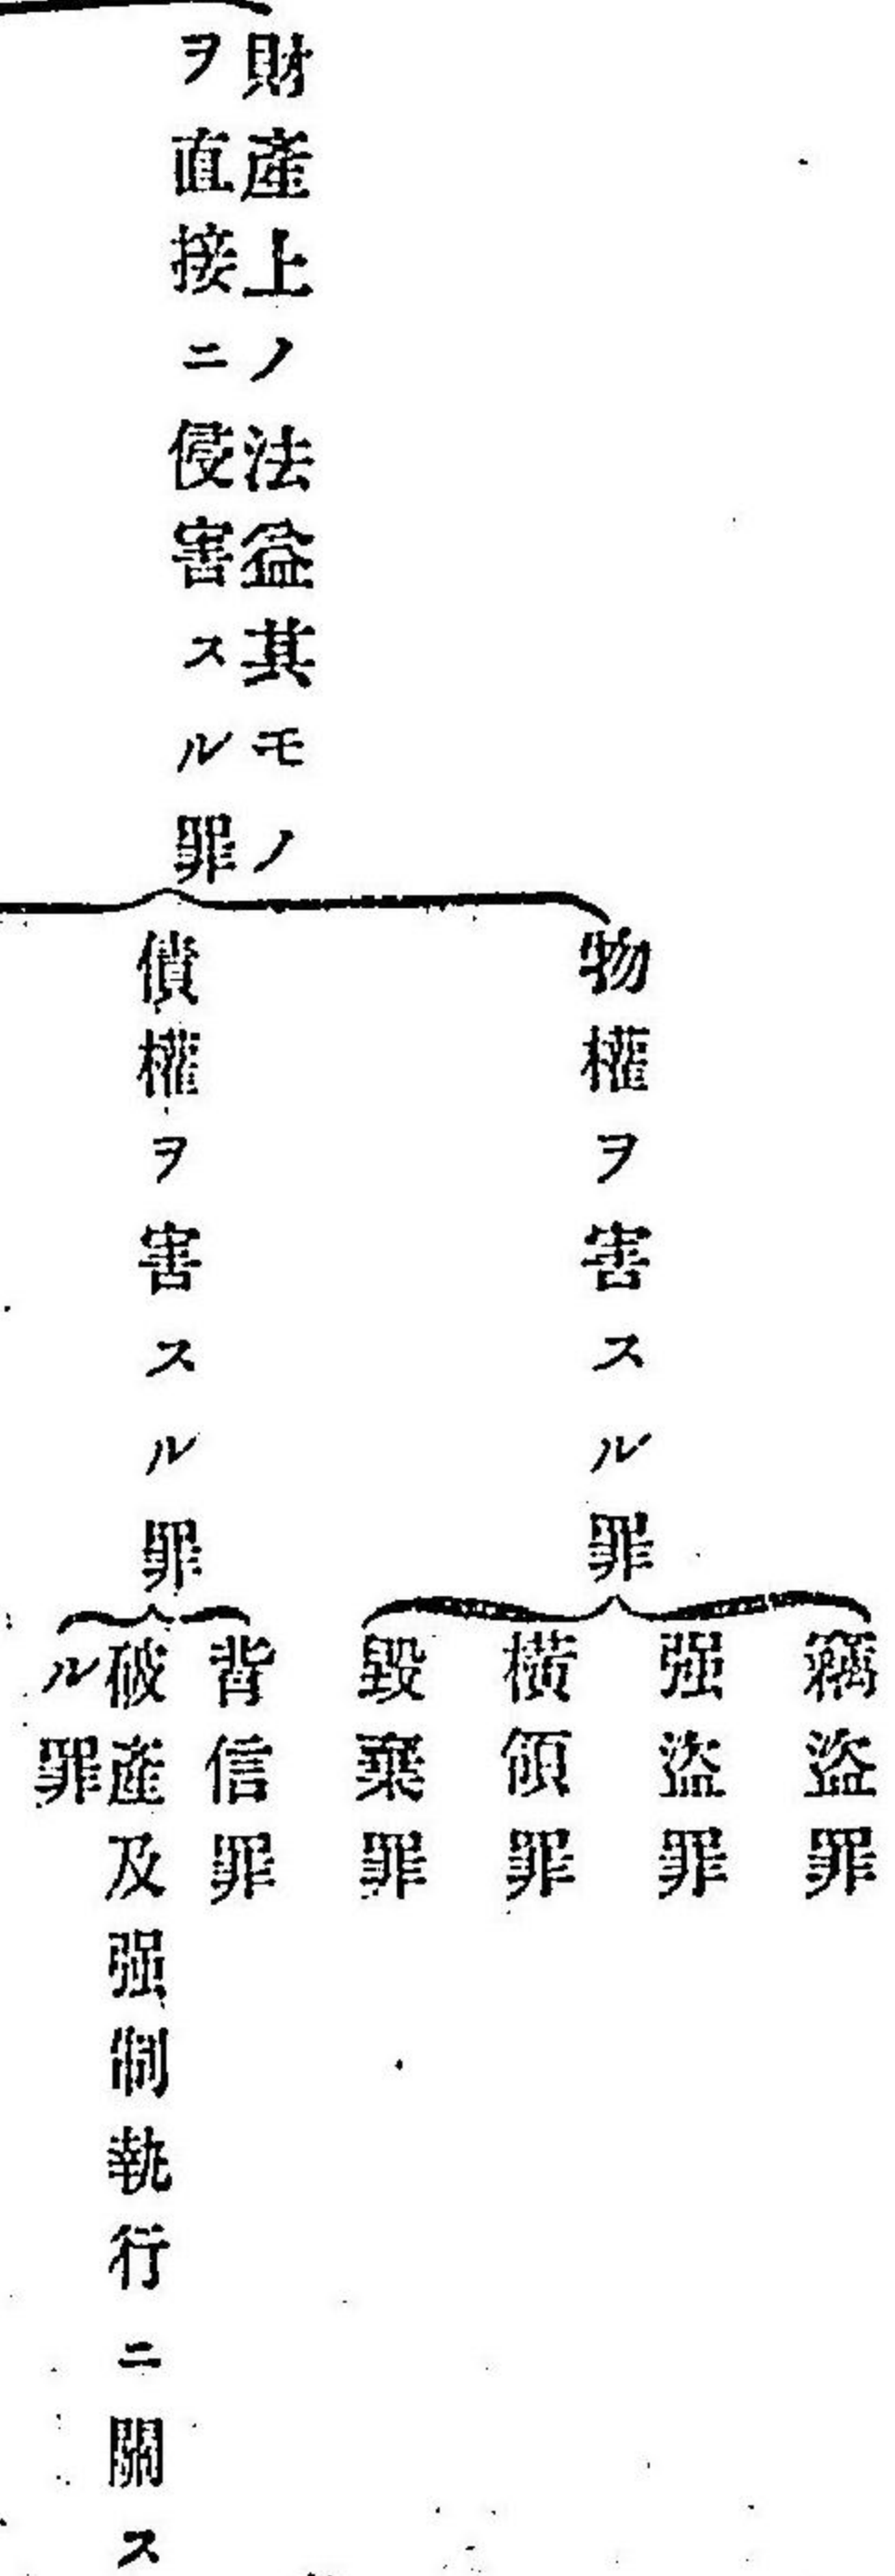 財產上ノ法益其モノ
ヲ直接ニ侵害スル罪
物權ヲ害スル罪
竊盜罪
强盜罪
橫領罪
毀棄罪
債權ヲ害スル罪
背信罪
破產及强制執行ニ關ス
ル罪